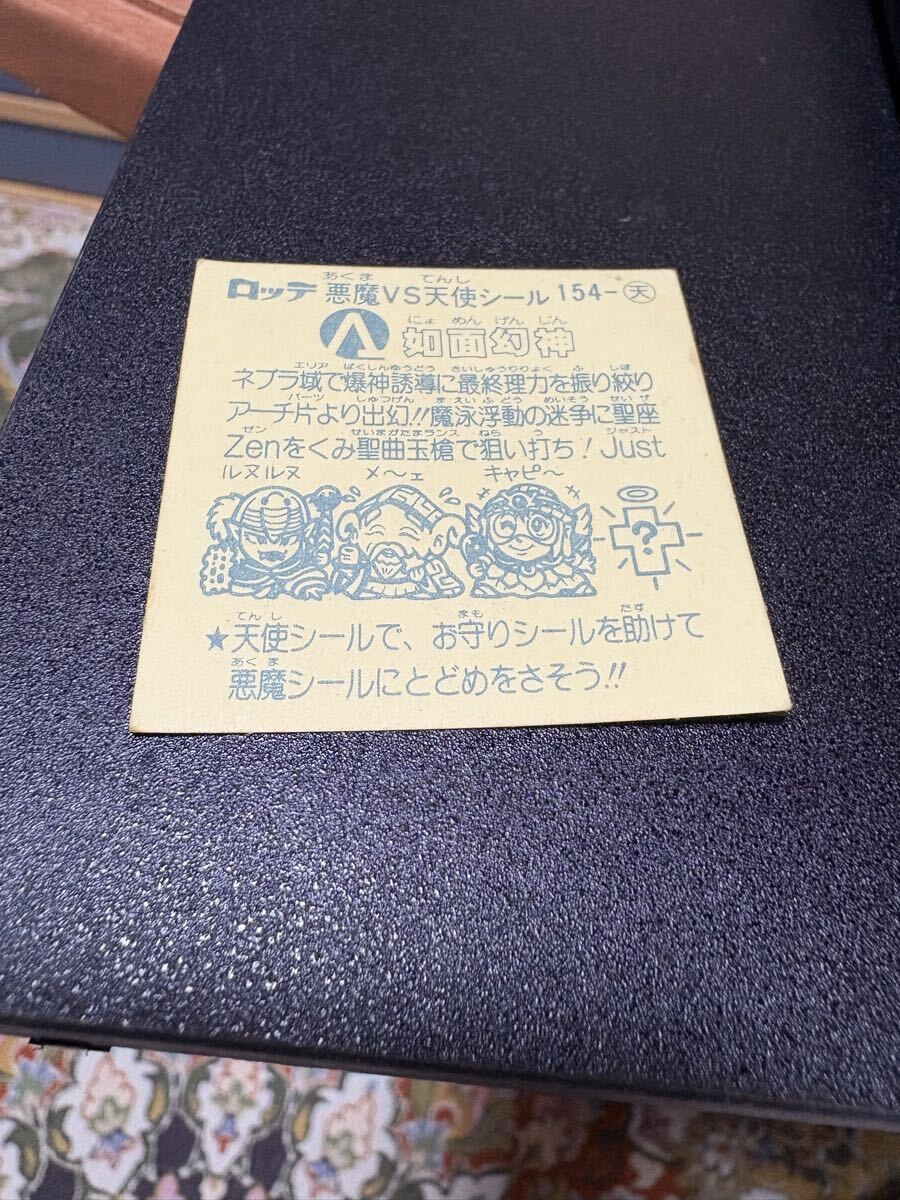 あくま てんし
ロッテ 悪魔VS天使シール 154-天
にょ めん げん じん
如面幻神
エリア ばくしんゆうどう さいしゅうりりょく ふ しぼ
ネブラ域で爆神誘導に最終理力を振り絞り
パーツ しゅつげん まえいふどう めいそう せいザ
アーチ片より出幻!!魔泳浮動の迷争に聖座
ゼン せいまがたまランス ねら う ジャスト
Zenをくみ聖曲玉槍で狙い打ち! Just
ルヌルヌ メ〜ェ キャピ〜
?
てんし まも たす
★天使シールで、お守りシールを助けて
あくま
悪魔シールにとどめをさそう!!